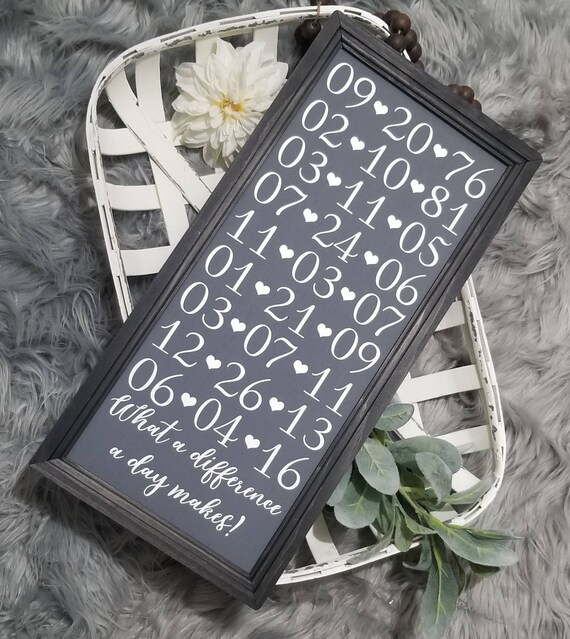 09♥20♥76
02♥10♥81
03♥11♥05
07♥24♥06
11♥03♥07
01♥21♥09
03♥07♥11
12♥26♥13
06♥04♥16
What a difference
a day makes!